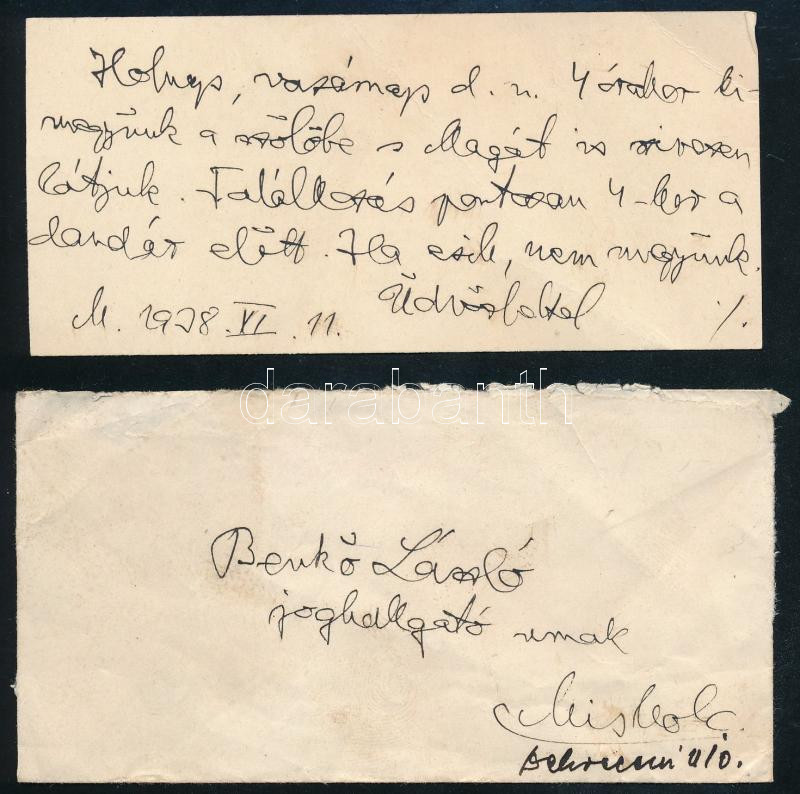 Holnap, vasárnap d. n. 4 órakor ki-
megyünk a szőlőbe s Magát is szivesen
látjuk. Találkozás pontosan 4-kor a
dandár előtt. Ha esik, nem megyünk.
M. 1938. VI. 11. Üdvözlettel ./.
darabanth
Benkő László
joghallgató urnak
Miskolc.
Debreceni u.